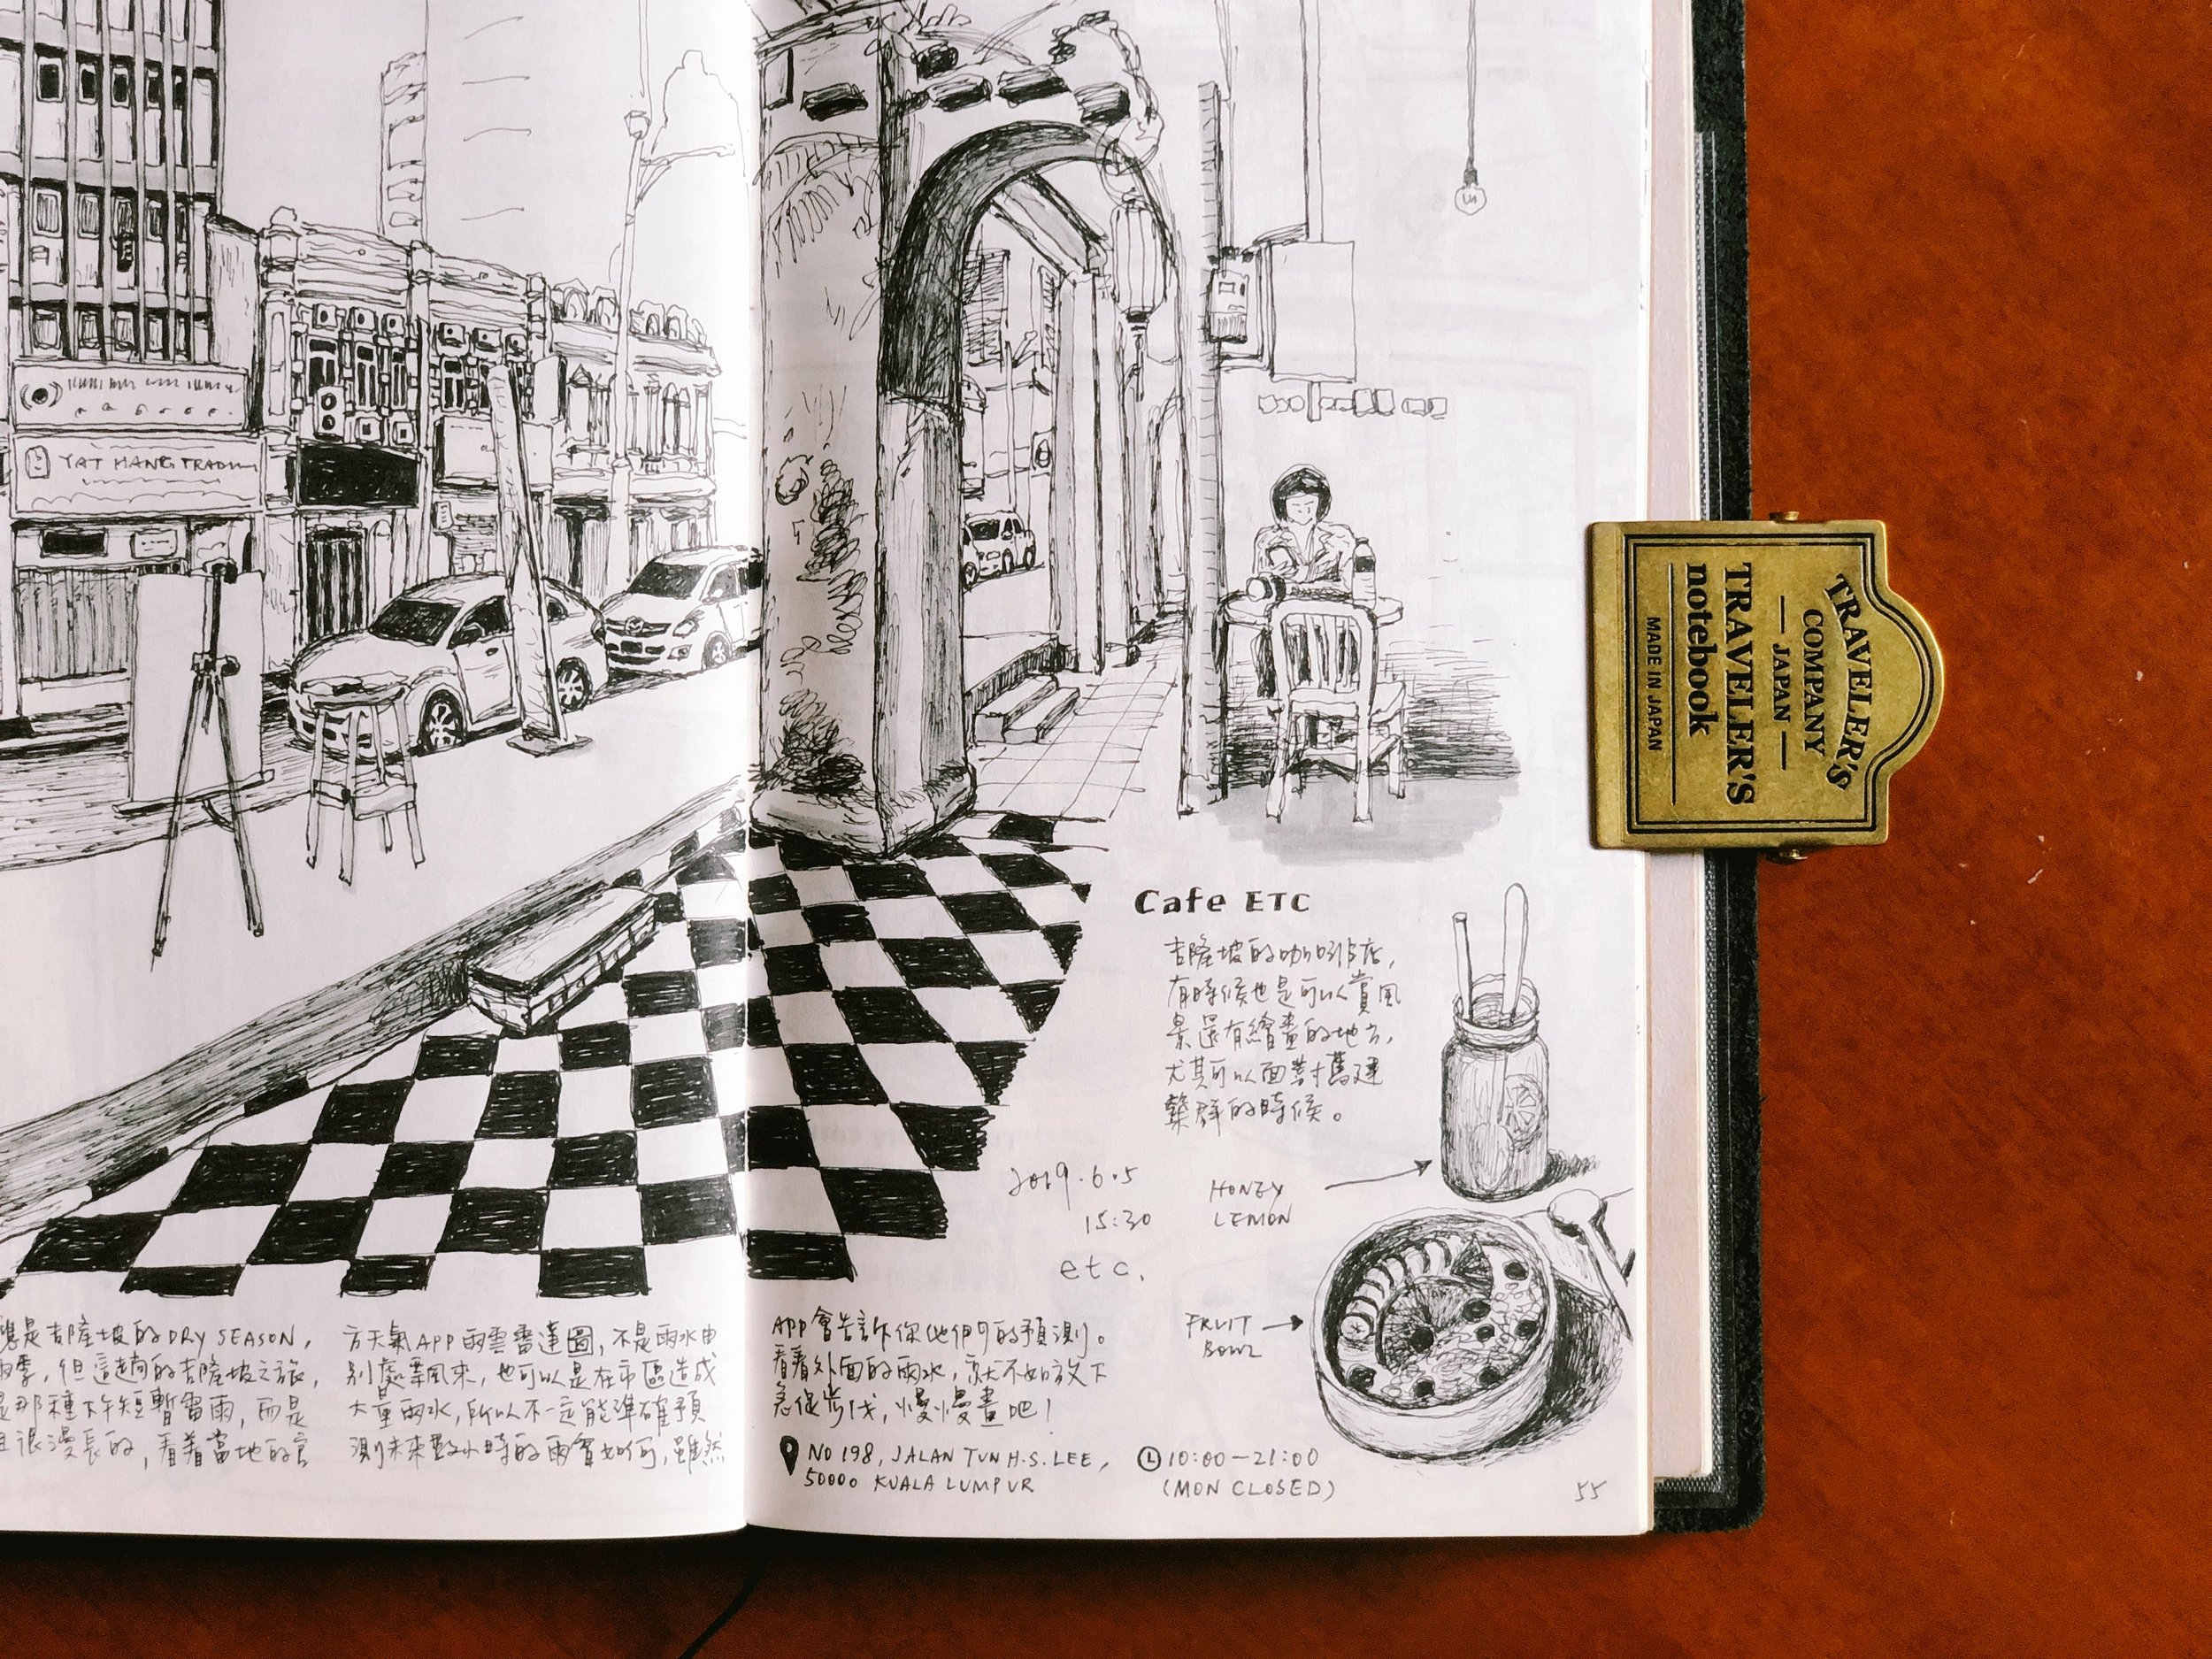 YAT HANG TRADIN
Cafe ETC
吉隆坡的咖啡店，
有時候也是可以賞風
景還有繪畫的地方，
尤其可以面對舊建
築群的時候。
2019.6.5
15:30
etc.
HONEY
LEMON
FRUIT
BOWL
應是吉隆坡的DRY SEASON，
雨季，但這趟的吉隆坡之旅，
是那種下午短暫雷雨，而是
且很漫長的，看着當地的官
方天氣APP雨雲雷達圖，不是雨水由
別處乘風來，也可以是在市區造成
大量雨水，所以不一定能準確預
測未來數小時的雨勢如何，雖然
APP會告訴你他們的預測。
看看外面的雨水，就不如放下
急促步伐，慢慢畫吧！
NO 198, JALAN TUN H.S. LEE,
50000 KUALA LUMPUR
10:00—21:00
(MON CLOSED)
55
TRAVELER'S
COMPANY
— JAPAN —
TRAVELER'S
notebook
MADE IN JAPAN